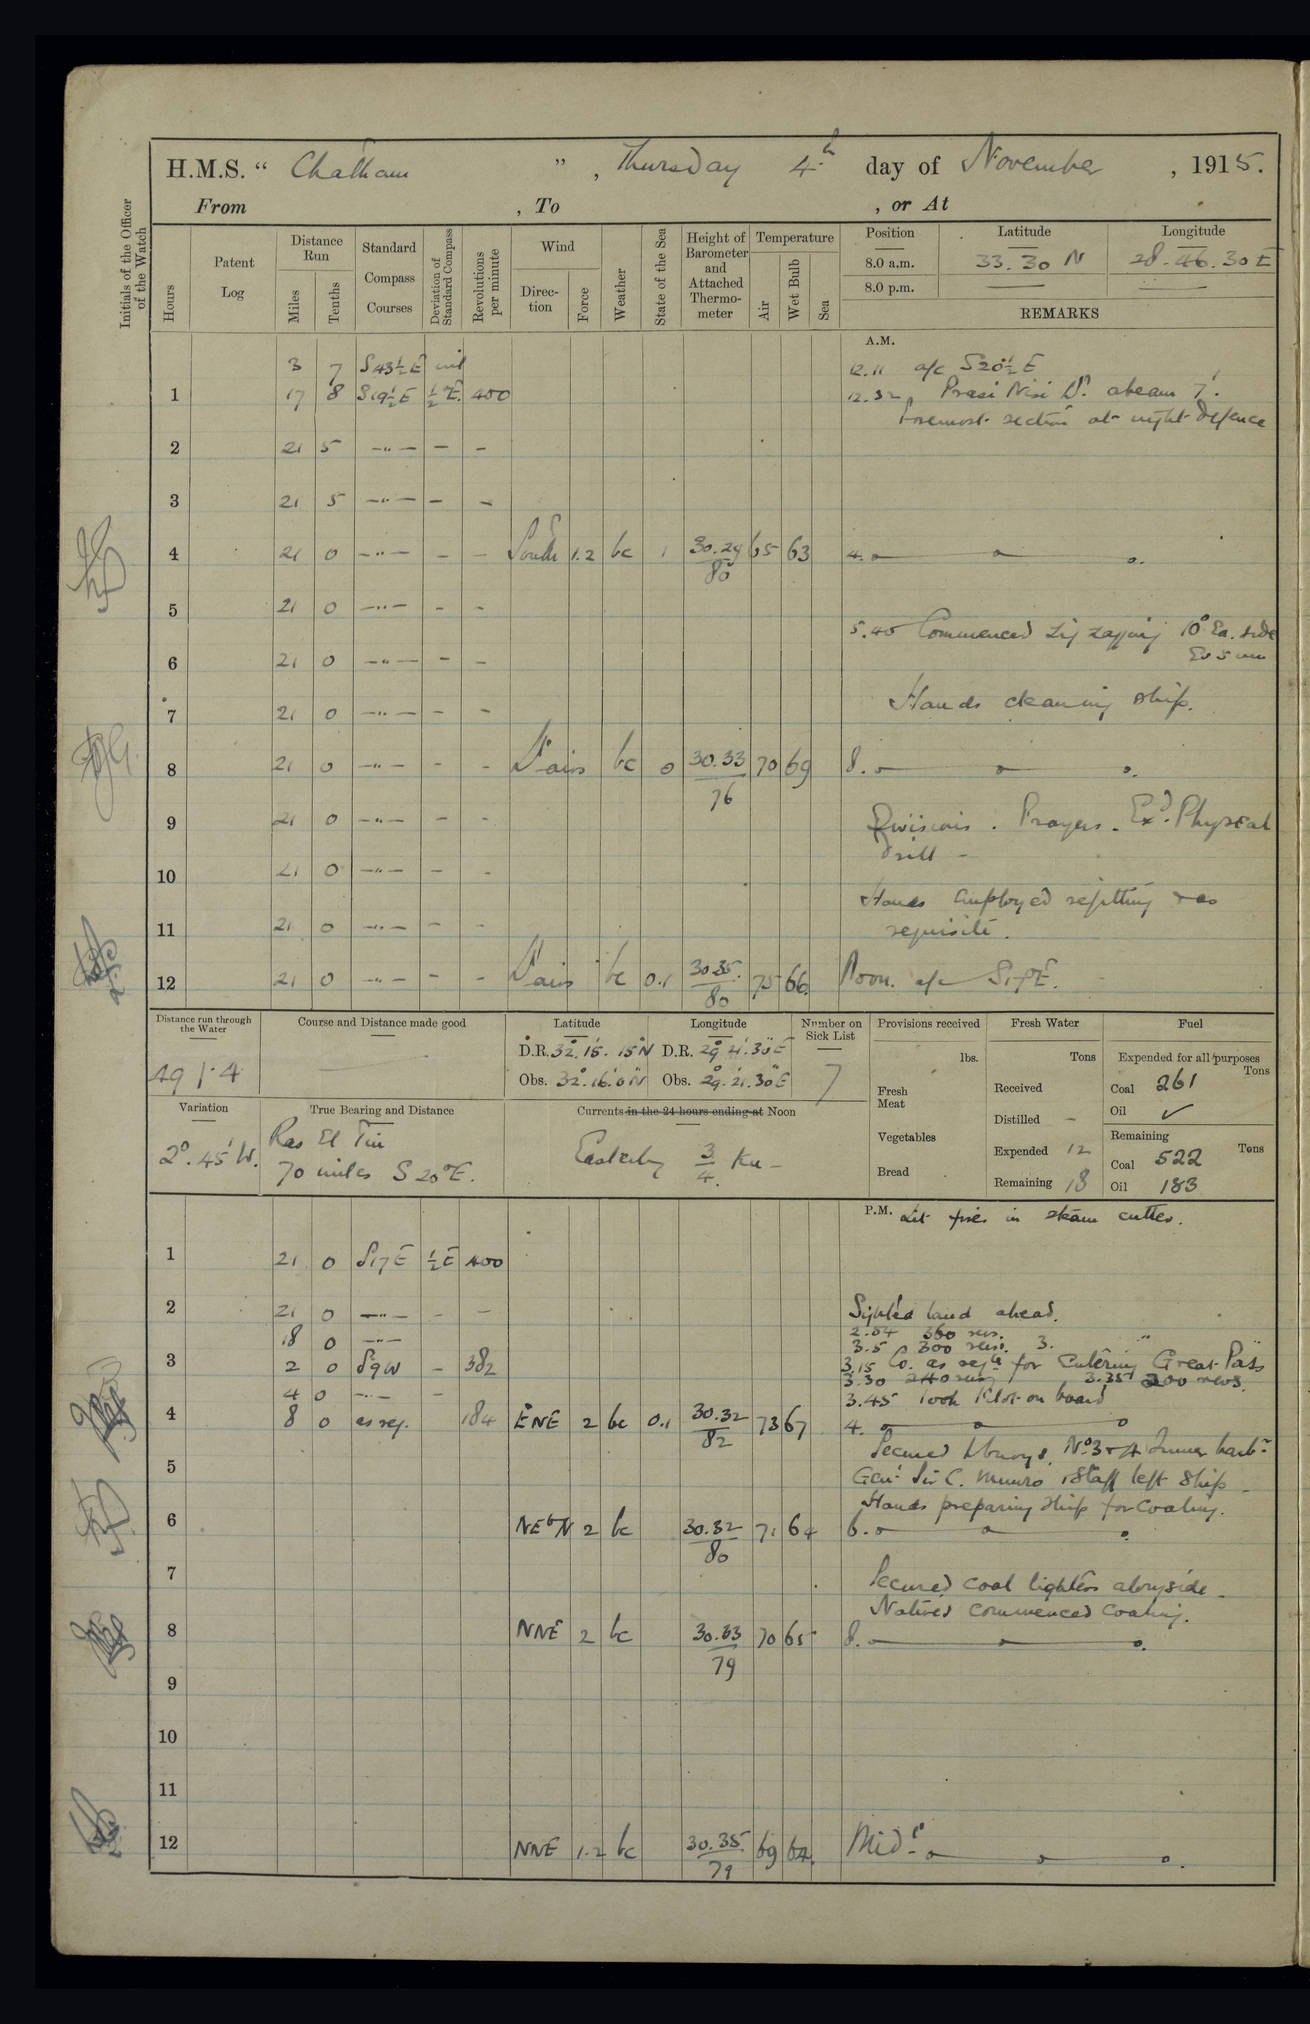 H.M.S. “ Chatham ” , Thursday 4th day of November , 1915.
From , To , or At
Initials of the Officer of the Watch
Hours
Patent Log
Distance Run
Miles
Tenths
Standard Compass Courses
Deviation of Standard Compass
Revolutions per minute
Wind
Direc-tion
Force
Weather
State of the Sea
Height of Barometer and Attached Thermo-meter
Temperature
Air
Wet Bulb
Sea
Position Latitude Longitude
8.0 a.m. 33.30 N 28.46.30 E
8.0 p.m. — —
REMARKS
A.M.
3 7 S43½E nil 12.11 a/c S20½E
1 17 8 S19½E ½°E. 400 12.32 Prasi Nisi Lt. abeam 7'.
Foremost section at night defence
2 21 5 —"— — —
3 21 5 —"— — —
4 21 0 —"— — — South 1.2 bc 1 30.29/80 65 63 4.
5 21 0 —"— — —
5.40 Commenced zig zagging 10° Ea. side
Ev 5 min
6 21 0 —"— — —
Hands cleaning ship.
7 21 0 —"— — —
8 21 0 —"— — — Lt airs bc 0 30.33/76 70 69 8.
9 21 0 —"— — — Divisions. Prayers. Exd. Physical
drill —
10 21 0 —"— — —
Hands employed refitting & as
11 21 0 —"— — — requisite.
12 21 0 —"— — — Lt airs bc 0.1 30.35/80 75 66. Noon. a/c S17°E.
Distance run through the Water
491.4
Course and Distance made good
Latitude Longitude
D.R. 32°.15'.15"N D.R. 29°.21'.30"E
Obs. 32°.16'.0"N Obs. 29°.21'.30"E
Number on Sick List
7
Provisions received
lbs.
Fresh Meat
Vegetables
Bread
Fresh Water
Tons
Received
Distilled —
Expended 12
Remaining 18
Fuel
Expended for all purposes
Tons
Coal 261
Oil ✓
Remaining
Tons
Coal 522
Oil 183
Variation
2°.45' W.
True Bearing and Distance
Ras El Tin
70 miles S 20°E.
Currents in the 24 hours ending at Noon
Easterly 3/4 Kn —
P.M. Lit fires in steam cutter.
1 21 0 S17E ½E 400
2 21 0 —"— — — Sighted land ahead.
18 0 —"— 2.54 360 revs.
3.5 300 revs. 3.
3 2 0 S9W — 382 3.15 Co. as reqte for entering Great Pass
3.30 240 revs 3.35 200 revs.
4 0 —"— — 3.45 Took Pilot on board
4 8 0 as req. 184 ENE 2 bc 0.1 30.32/82 73 67 4.
Secured to buoys, No. 3 & 4 Inner harbr.
5 Genl. Sir C. Munro & Staff left ship —
Hands preparing ship for coaling.
6 NEbN 2 bc 30.32/80 71 64 6.
7 Secured coal lighters alongside —
Natives commenced coaling.
8 NNE 2 bc 30.33/79 70 65 8.
9
10
11
12 NNE 1.2 bc 30.35/79 69 64. Midt.